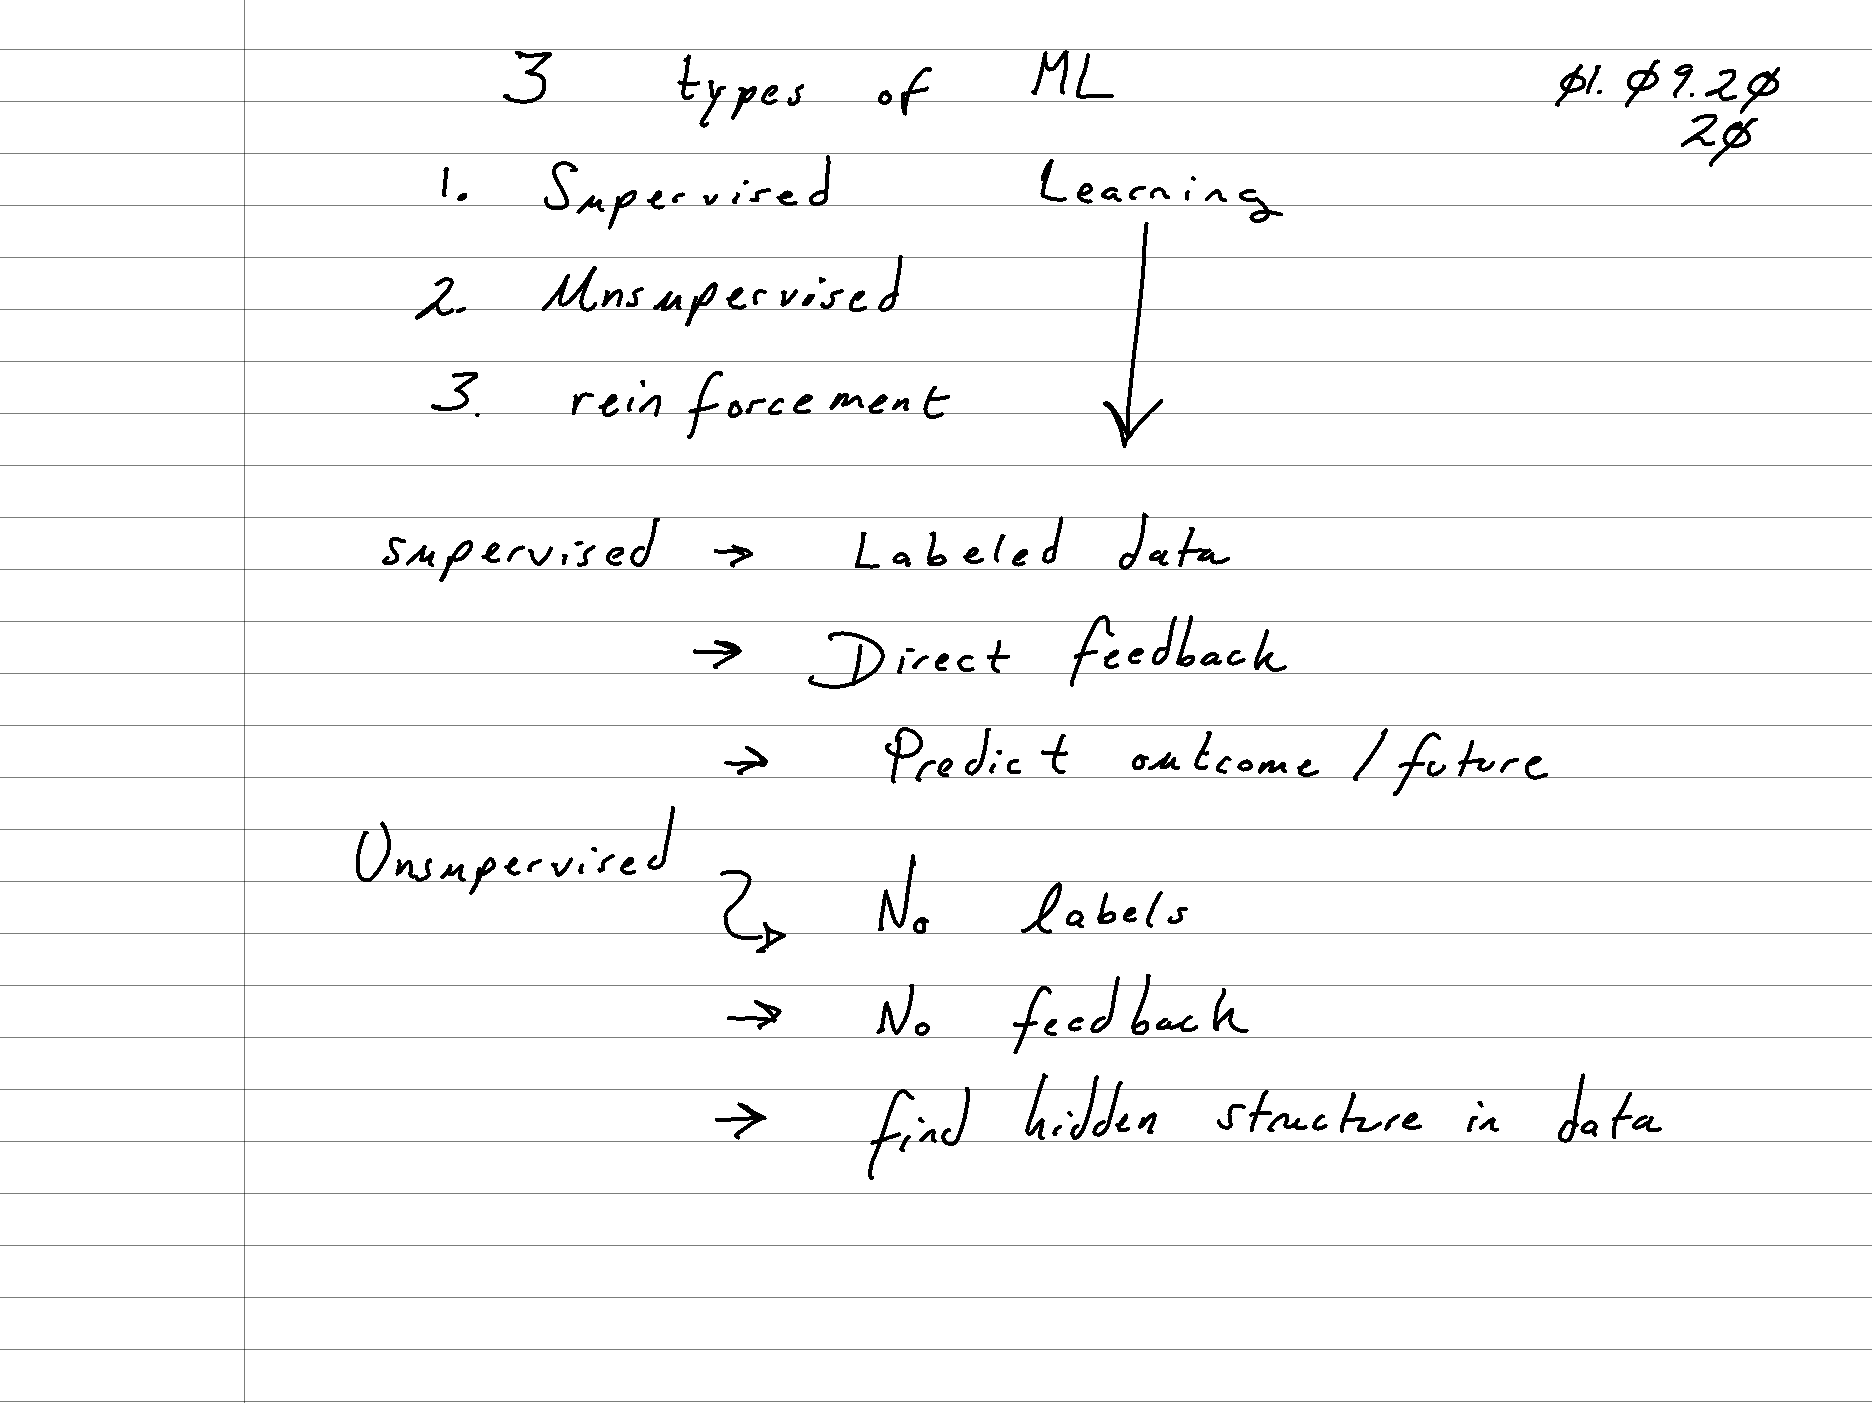 3 types of ML 01.09.20
20
1. Supervised Learning
2. Unsupervised
3. reinforcement
supervised → Labeled data
→ Direct feedback
→ Predict outcome / future
Unsupervised
→ No labels
→ No feedback
→ find hidden structure in data